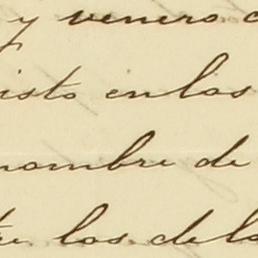 y venero
isto en los
nombre de
los de la